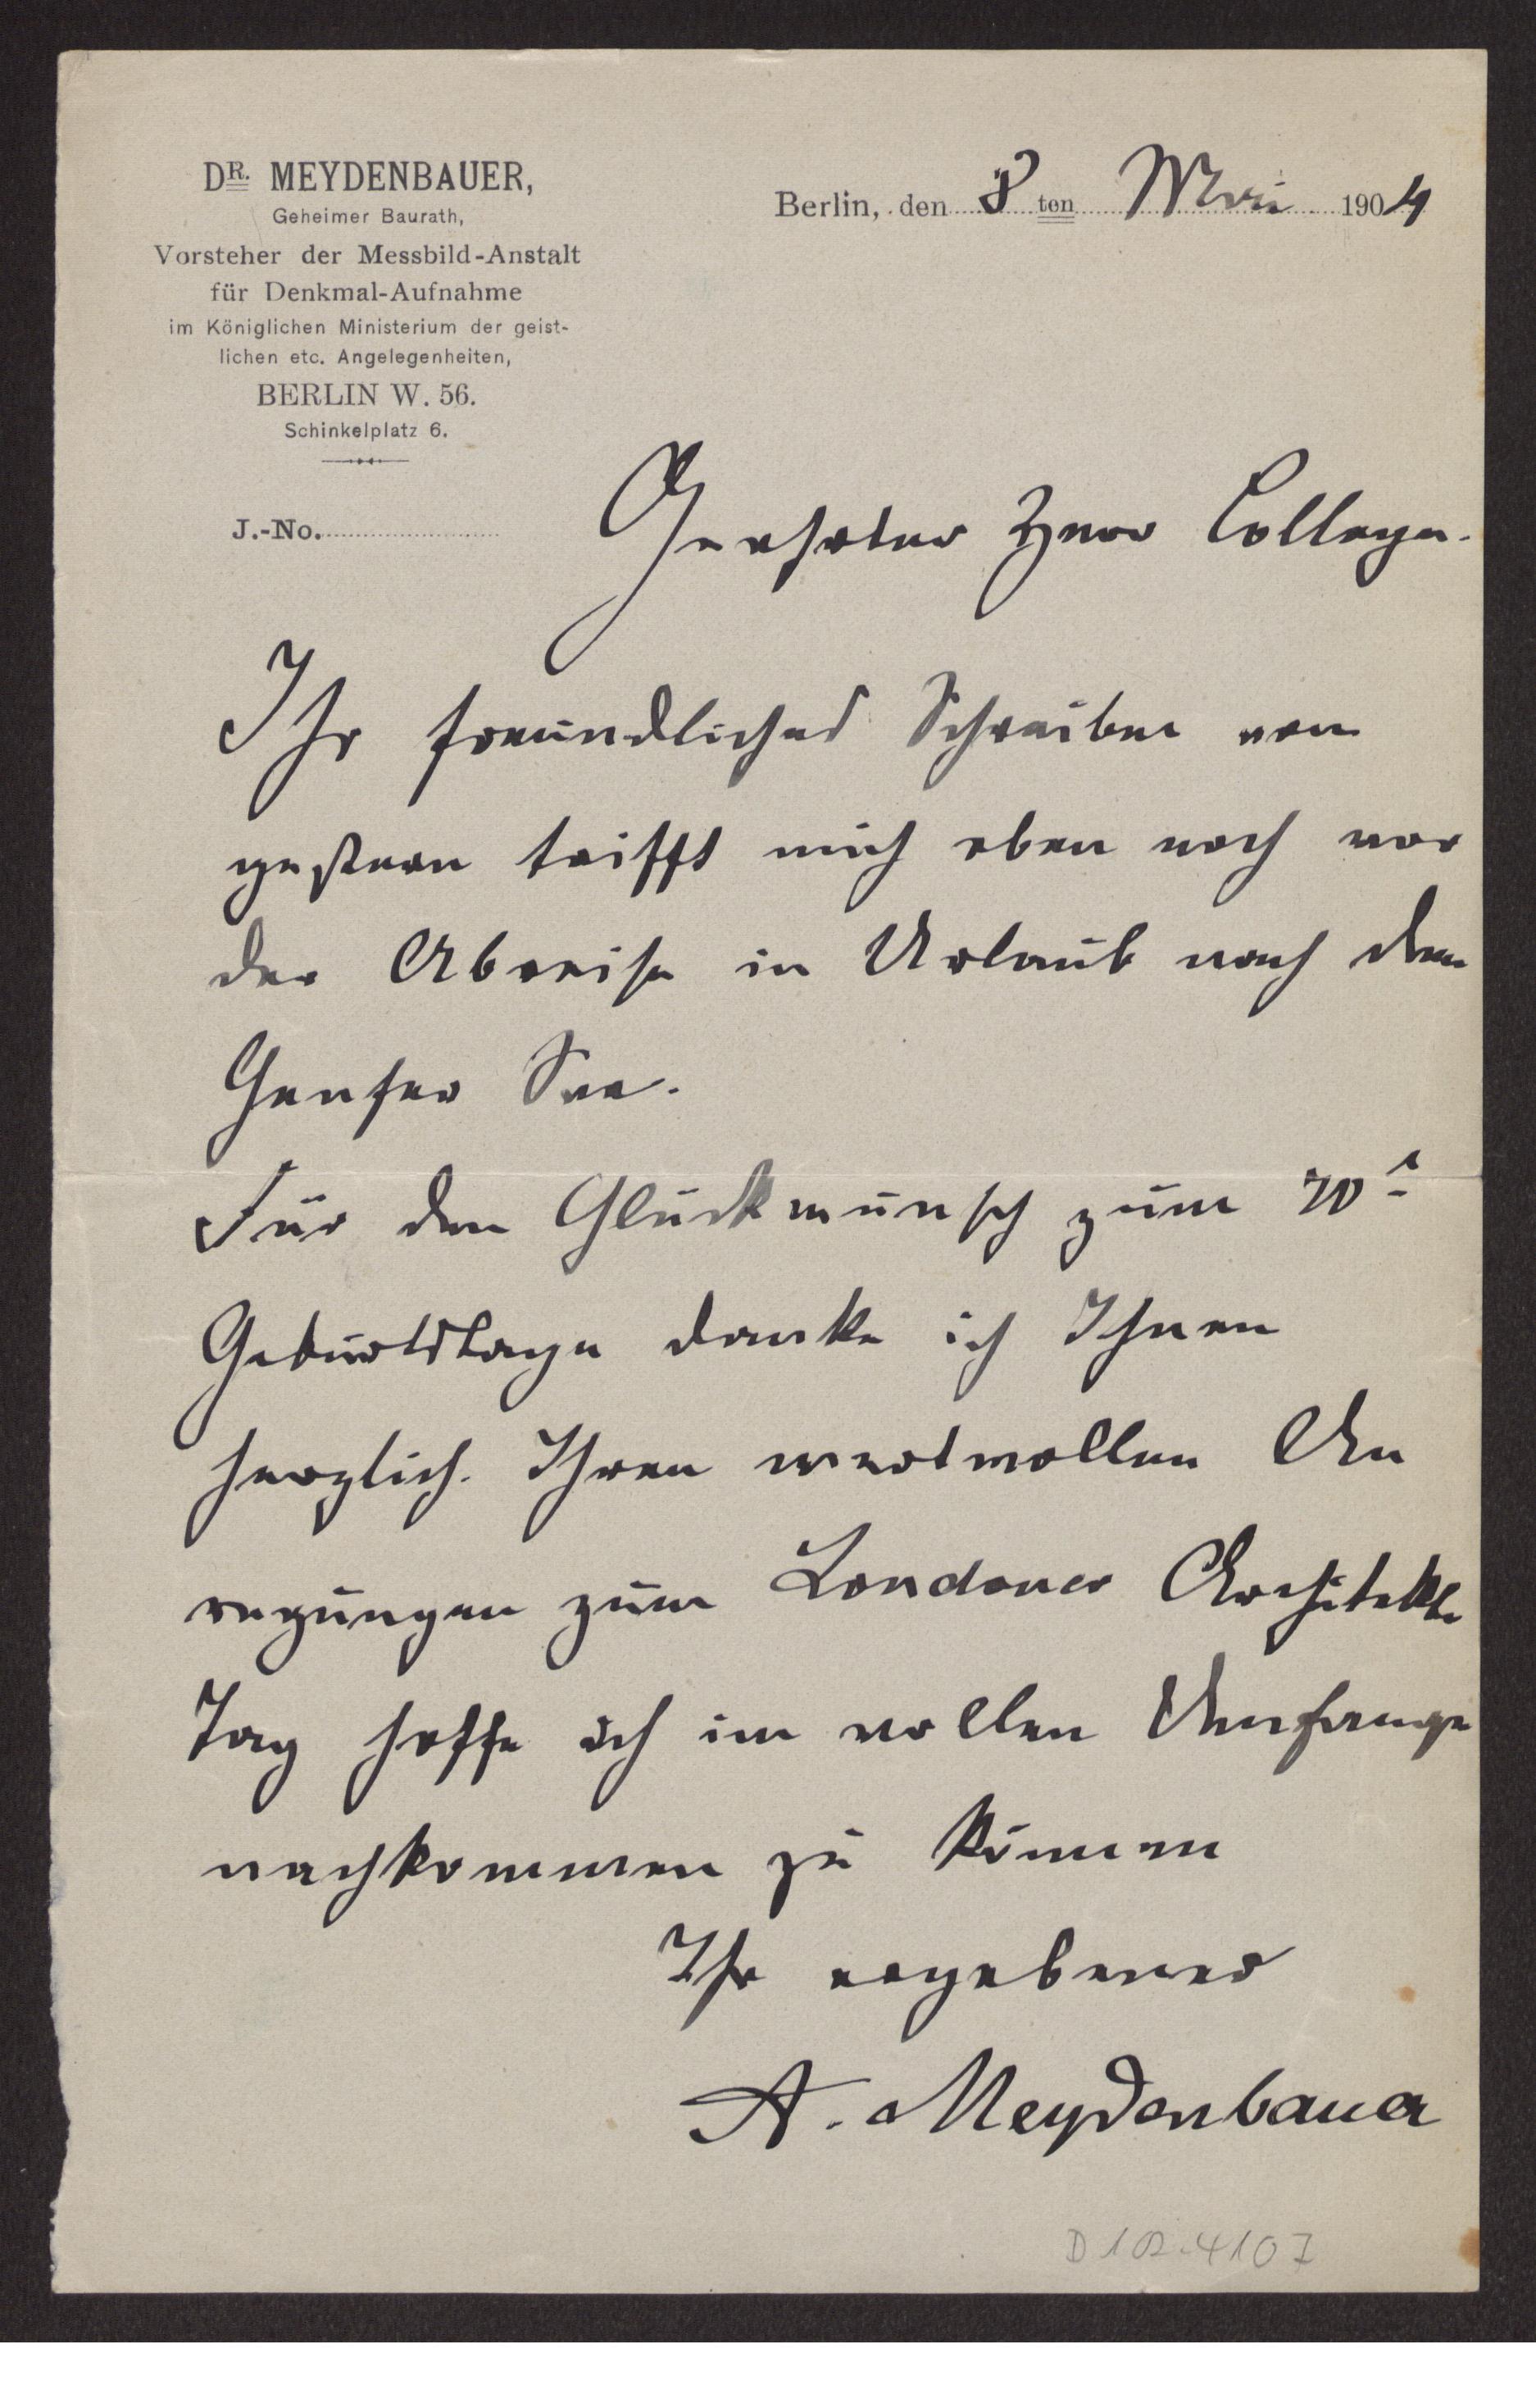 DR. MEYDENBAUER,
Geheimer Baurath,
Vorsteher der Messbild-Anstalt
für Denkmal-Aufnahme
im Königlichen Ministerium der geist-
lichen etc. Angelegenheiten,
BERLIN W. 56.
Schinkelplatz 6.
J.-No.
Berlin, den 8ten Mai 1904
Geehrter Herr College.
Ihr freundliches Schreiben von
gestern trifft mich eben noch vor
der Abreise in Urlaub nach dem
Genfer See.
Für den Glückwunsch zum 70
Geburtstage danke ich Ihnen
herzlich. Ihren wertvollen An
regungen zum Londoner Architekten
Tag hoffe ich im vollen Umfange
nachkommen zu können
Ihr ergebener
A. Meydenbauer
D 102.4107